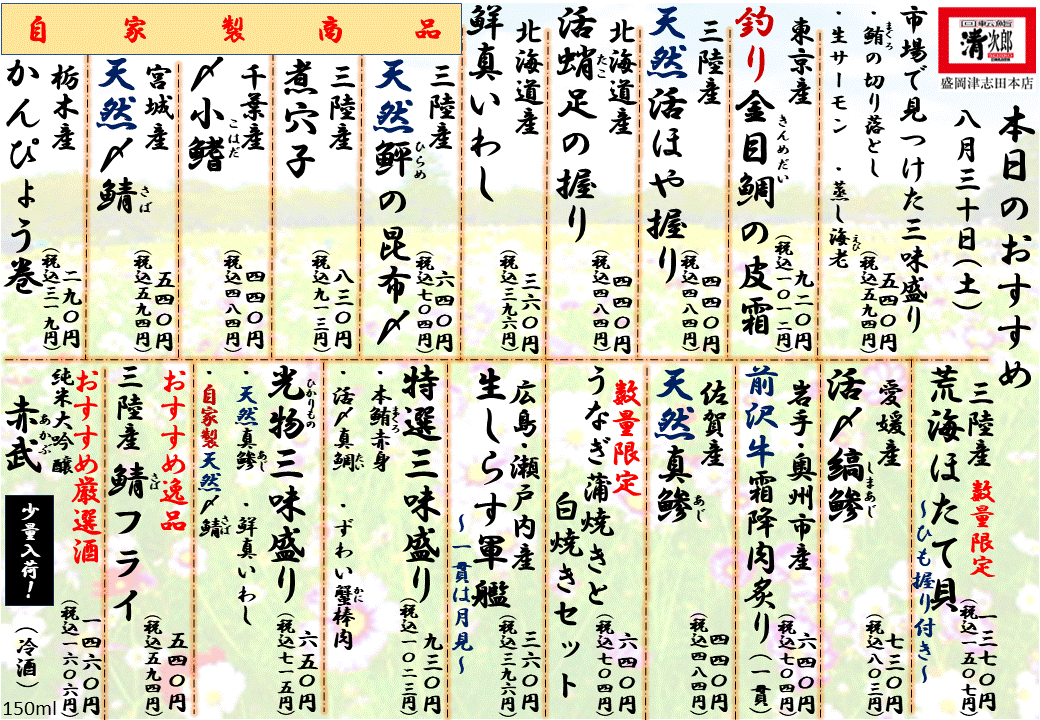 回転鮨
清次郎
盛岡津志田本店
本日のおすすめ
八月三十日(土)
市場で見つけた三味盛り
・鮪の切り落とし
まぐろ
・生サーモン ・蒸し海老
えび
五四〇円
(税込五九四円)
東京産
釣り金目鯛の皮霜
きんめだい
九二〇円
(税込一〇一二円)
三陸産
天然活ほや握り
四四〇円
(税込四八四円)
北海道産
活蛸足の握り
たこ
四四〇円
(税込四八四円)
北海道産
鮮真いわし
三六〇円
(税込三九六円)
自家製商品
三陸産
天然鮃の昆布〆
ひらめ
六四〇円
(税込七〇四円)
三陸産
煮穴子
八三〇円
(税込九一三円)
千葉産
〆小鰭
こはだ
四四〇円
(税込四八四円)
宮城産
天然〆鯖
さば
五四〇円
(税込五九四円)
栃木産
かんぴょう巻
二九〇円
(税込三一九円)
三陸産 数量限定
荒海ほたて貝
~ひも握り付き~
一三七〇円
(税込一五〇七円)
愛媛産
活〆縞鯵
しまあじ
七三〇円
(税込八〇三円)
岩手・奥州市産
前沢牛霜降肉炙り(一貫)
六四〇円
(税込七〇四円)
佐賀産
天然真鯵
あじ
四四〇円
(税込四八四円)
数量限定
うなぎ蒲焼きと
白焼きセット
六四〇円
(税込七〇四円)
広島・瀬戸内産
生しらす軍艦
~一貫は月見~
三六〇円
(税込三九六円)
特選三味盛り
・本鮪赤身 ・ずわい蟹棒肉
まぐろ
かに
・活〆真鯛
たい
九三〇円
(税込一〇二三円)
光物三味盛り
ひかりもの
・天然真鯵 ・鮮真いわし
あじ
・自家製天然〆鯖
さば
六五〇円
(税込七一五円)
おすすめ逸品
三陸産 鯖フライ
さば
五四〇円
(税込五九四円)
おすすめ厳選酒
純米大吟醸
赤武
あかぶ
少量入荷!
一四六〇円
(税込一六〇六円)
(冷酒)
150ml